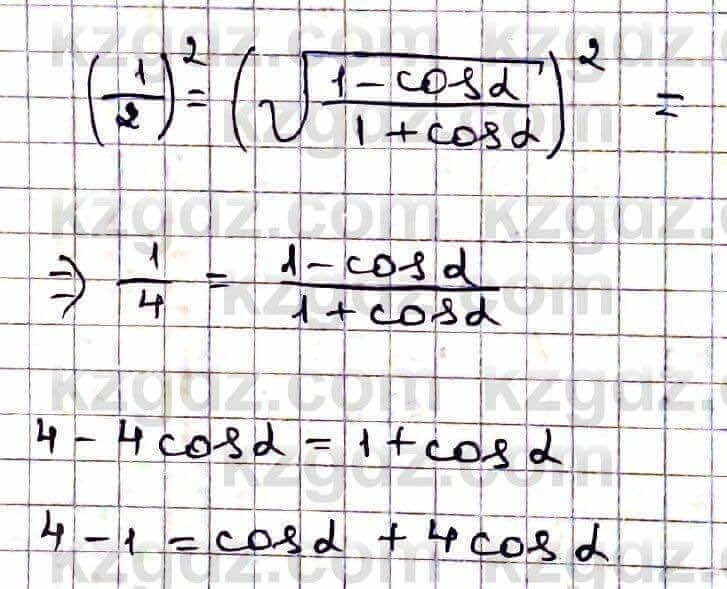 (1/2)² = (√((1-cosα)/(1+cosα)))² =
⇒ 1/4 = (1-cosα)/(1+cosα)
4-4cosα=1+cosα
4-1=cosα+4cosα
kzgdz.com